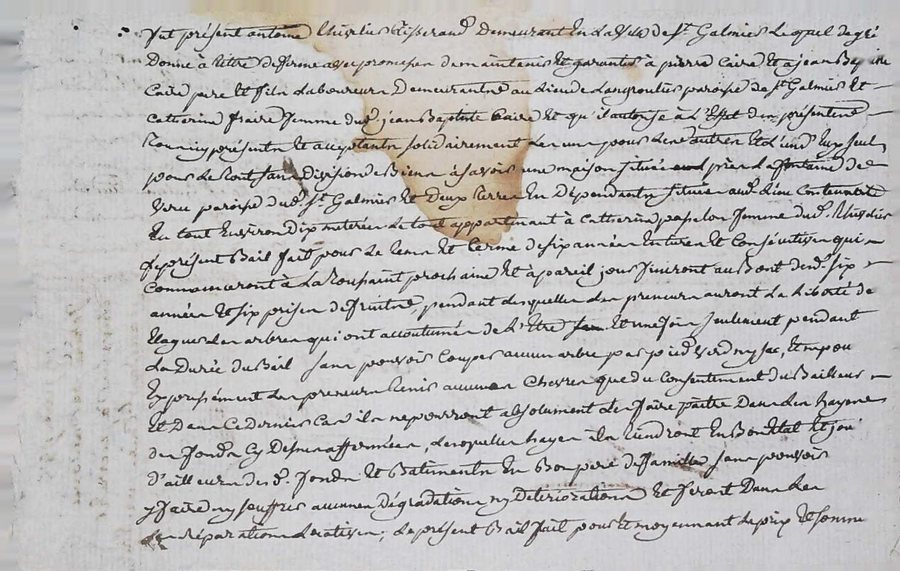 fut présent antoine Thivelier tisserand demeurant En La ville de St. Galmier Lequel de gré
Donne à tittre de ferme avec promesse de maintenir Et garantir à pierre Caire Et a jean Bap.te
Caire pere Et fils Laboureurs Demeurants au Lieu de paroisse de St. Galmier Et
Catherine fraire femme dud. jean Baptiste Caire Et qu'il autorise à L'Effet des présentes
présents Et acceptants solidairement L'un pour L'autre Et L'un d'Eux seul
pour Le tout sans Division de Biens à savoir une maison située près La fontaine de
Veru paroisse dud. St. Galmier Et Deux terres En Dépendants situées aud. Lieu Contenant
En tout Environ Dix Le tout appartenant à Catherine papelon femme dud. Thivelier
Le présent Bail fait pour Le tems Et terme de six années Entieres Et Consécutives qui
Commenceront à La toussaint prochaine Et à pareil jour finiront au Bout desd. six
années Et six prises de fruits, pendant Lesquelles Les preneurs auront La Liberté de
Elaguer Les arbres qui ont accoutumés de L'Etre Et une fois seulement pendant
La Durée du Bail sans pouvoir Couper aucun arbre par pied verd ny sec, Et
Expressément Les preneurs tenir aucunes Chevres que du Consentement du Bailleur
Et Dans Ce dernier Cas ils ne pourront absolument Les faire paitre Dans Les hayes
des fonds Cy Dessus affermées, Lesquelles hayes ils tiendront En Bon Etat Et joui
d'ailleurs desd. fonds Et Batiments En Bon pere de famille sans pouvoir
y faire ny souffrir aucunes Dégradations ny Deteriorations Et feront Dans Les
Les réparations Locatives; Le présent Bail fait pour Et moyennant Le prix Et somme